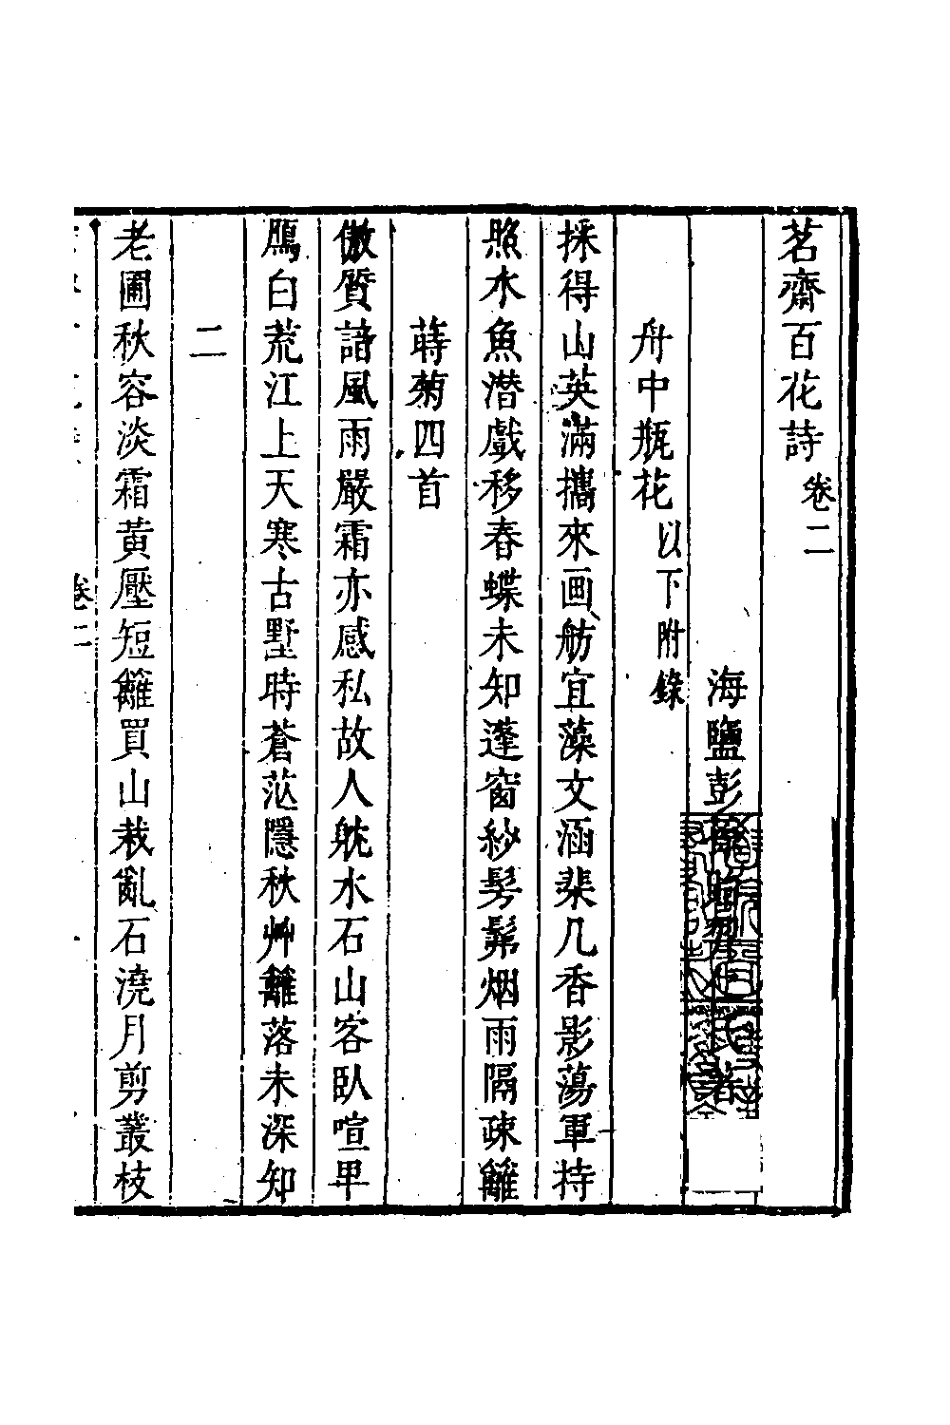 茗齋百花詩卷二
海鹽彭
舟中瓶花以下附錄
採得山英滿攜來画舫宜藻文涵棐几香影蕩軍持
照水魚潛戲移春蝶未知蓬窗紗髣髴烟雨隔疎籬
蒔菊四首
傲質諳風雨嚴霜亦感私故人躭水石山客臥喧卑
鴈白荒江上天寒古墅時蒼茫隱秋艸籬落未深知
二
老圃秋容淡霜黃壓短籬買山栽亂石澆月剪叢枝
卷二